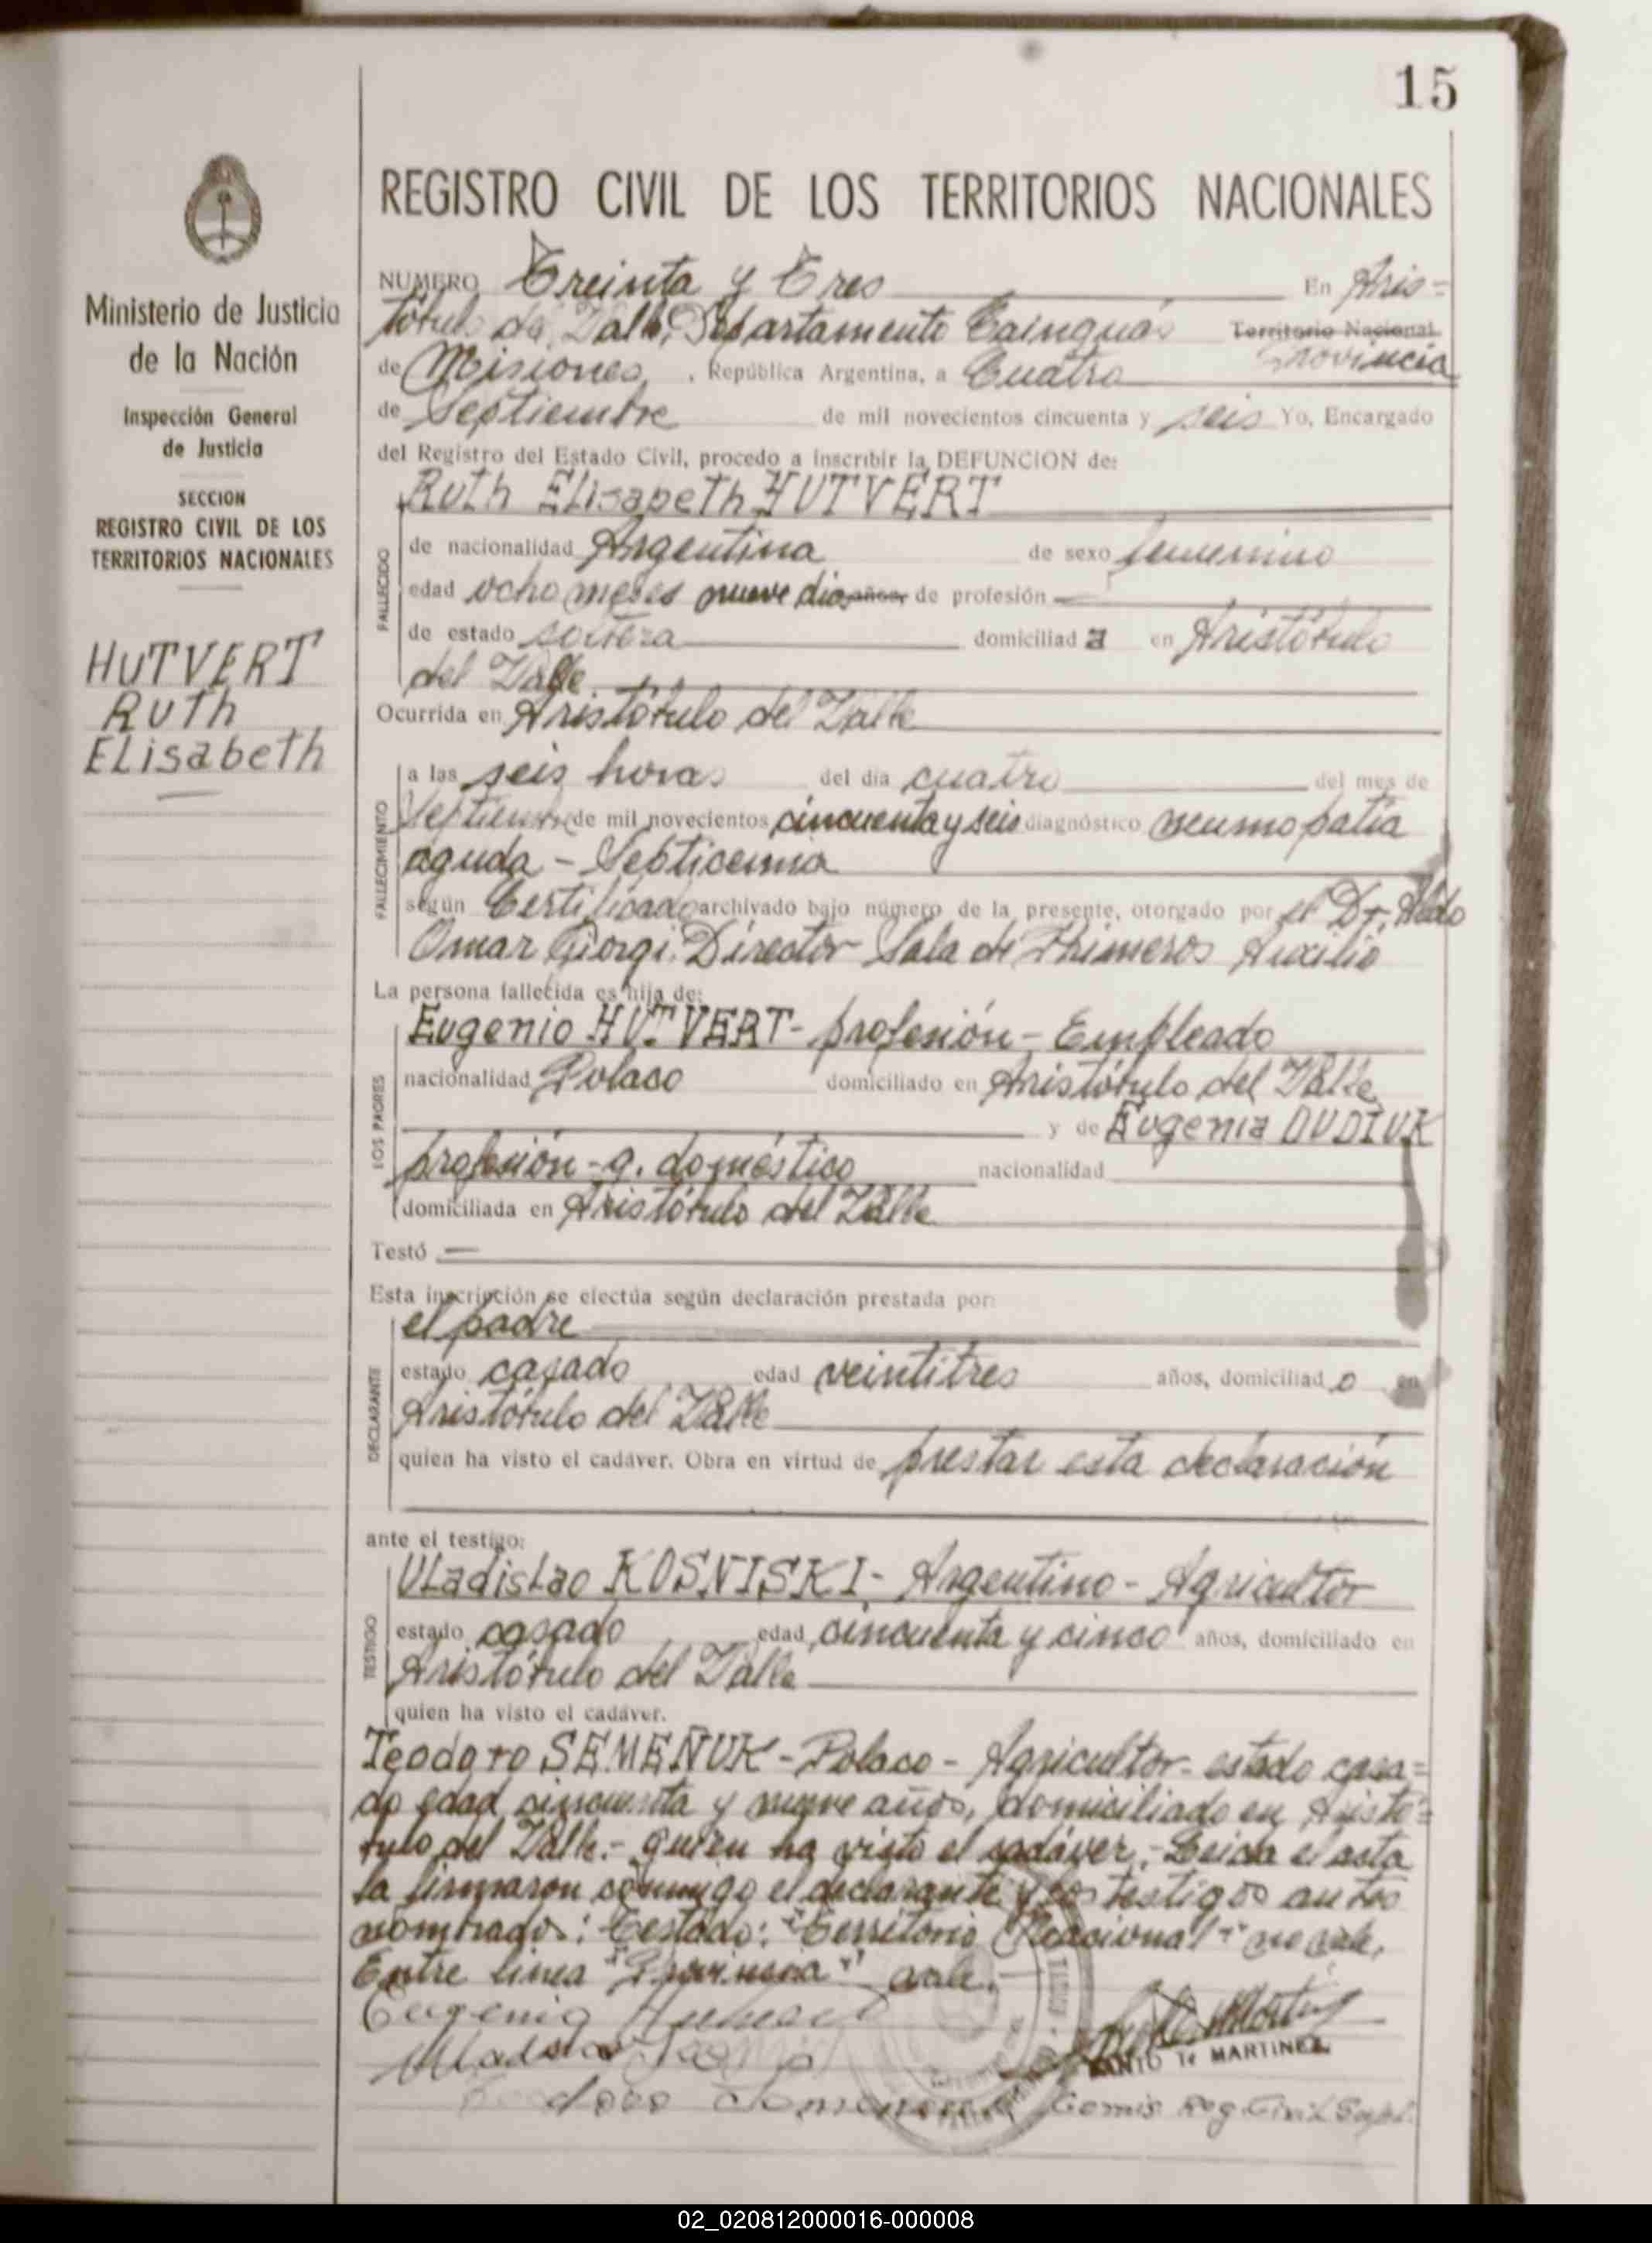 15
REGISTRO CIVIL DE LOS TERRITORIOS NACIONALES
Ministerio de Justicia
de la Nación
Inspección General
de Justicia
SECCION
REGISTRO CIVIL DE LOS
TERRITORIOS NACIONALES
HUTVERT
RUTh
ELisabeth
NUMERO Treinta y Tres En Aris=
tóbulo del Valle, Departamento Cainguás Territorio Nacional
Provincia
de Misiones, República Argentina, a Cuatro
de Septiembre de mil novecientos cincuenta y seis Yo, Encargado
del Registro del Estado Civil, procedo a inscribir la DEFUNCION de:
RUTh ELisabeTh HUTVERT
FALLECIDO
de nacionalidad Argentina de sexo femenino
edad ocho meses nueve dias años, de profesión —
de estado soltera domiciliad a en Aristóbulo
del Valle.
Ocurrida en Aristóbulo del Valle
FALLECIMIENTO
a las seis horas del día cuatro del mes de
Septiembre de mil novecientos cincuenta y seis diagnóstico neumopatia
aguda - Septicemia
según Certificado archivado bajo número de la presente, otorgado por el Dr. Aldo
Omar Giorgi. Director Sala de Primeros Auxilio
La persona fallecida es hija de:
LOS PADRES
Eugenio HUTVERT - profesión - Empleado
nacionalidad Polaco domiciliado en Aristóbulo del Valle
y de Eugenia DUDIUK
profesión - q. doméstico nacionalidad
domiciliada en Aristóbulo del Valle
Testó —
Esta inscripción se efectúa según declaración prestada por:
DECLARANTE
el padre
estado casado edad veintitres años, domiciliad o en
Aristóbulo del Valle
quien ha visto el cadáver. Obra en virtud de prestar esta declaración
ante el testigo:
TESTIGO
VLadisLao KOSNISKI - Argentino - Agricultor
estado casado edad cincuenta y cinco años, domiciliado en
Aristóbulo del Valle
quien ha visto el cadáver.
Teodoro SEMEÑUK - Polaco - Agricultor - estado casa=
do edad cincuenta y nueve años, domiciliado en Aristó=
bulo del Valle.- quien ha visto el cadáver.- Leida el acta
la firmaron conmigo el declarante y los testigos antes
nombrados: Testado: "Territorio Nacional" no vale.
Entre linea "Provincia" vale.
Eugenio
MARTINEZ
Reg. Civil
02_020812000016-000008